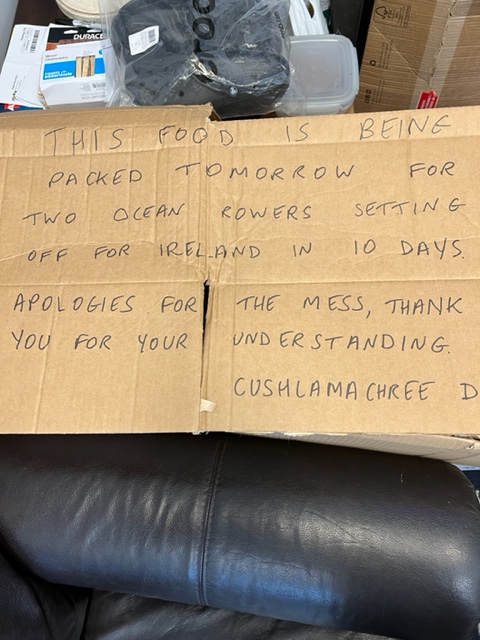 DURACE
THIS FOOD IS BEING
PACKED TOMORROW FOR
TWO OCEAN ROWERS SETTING
OFF FOR IRELAND IN 10 DAYS.
APOLOGIES FOR THE MESS, THANK
YOU FOR YOUR UNDERSTANDING.
CUSHLAMACHREE D